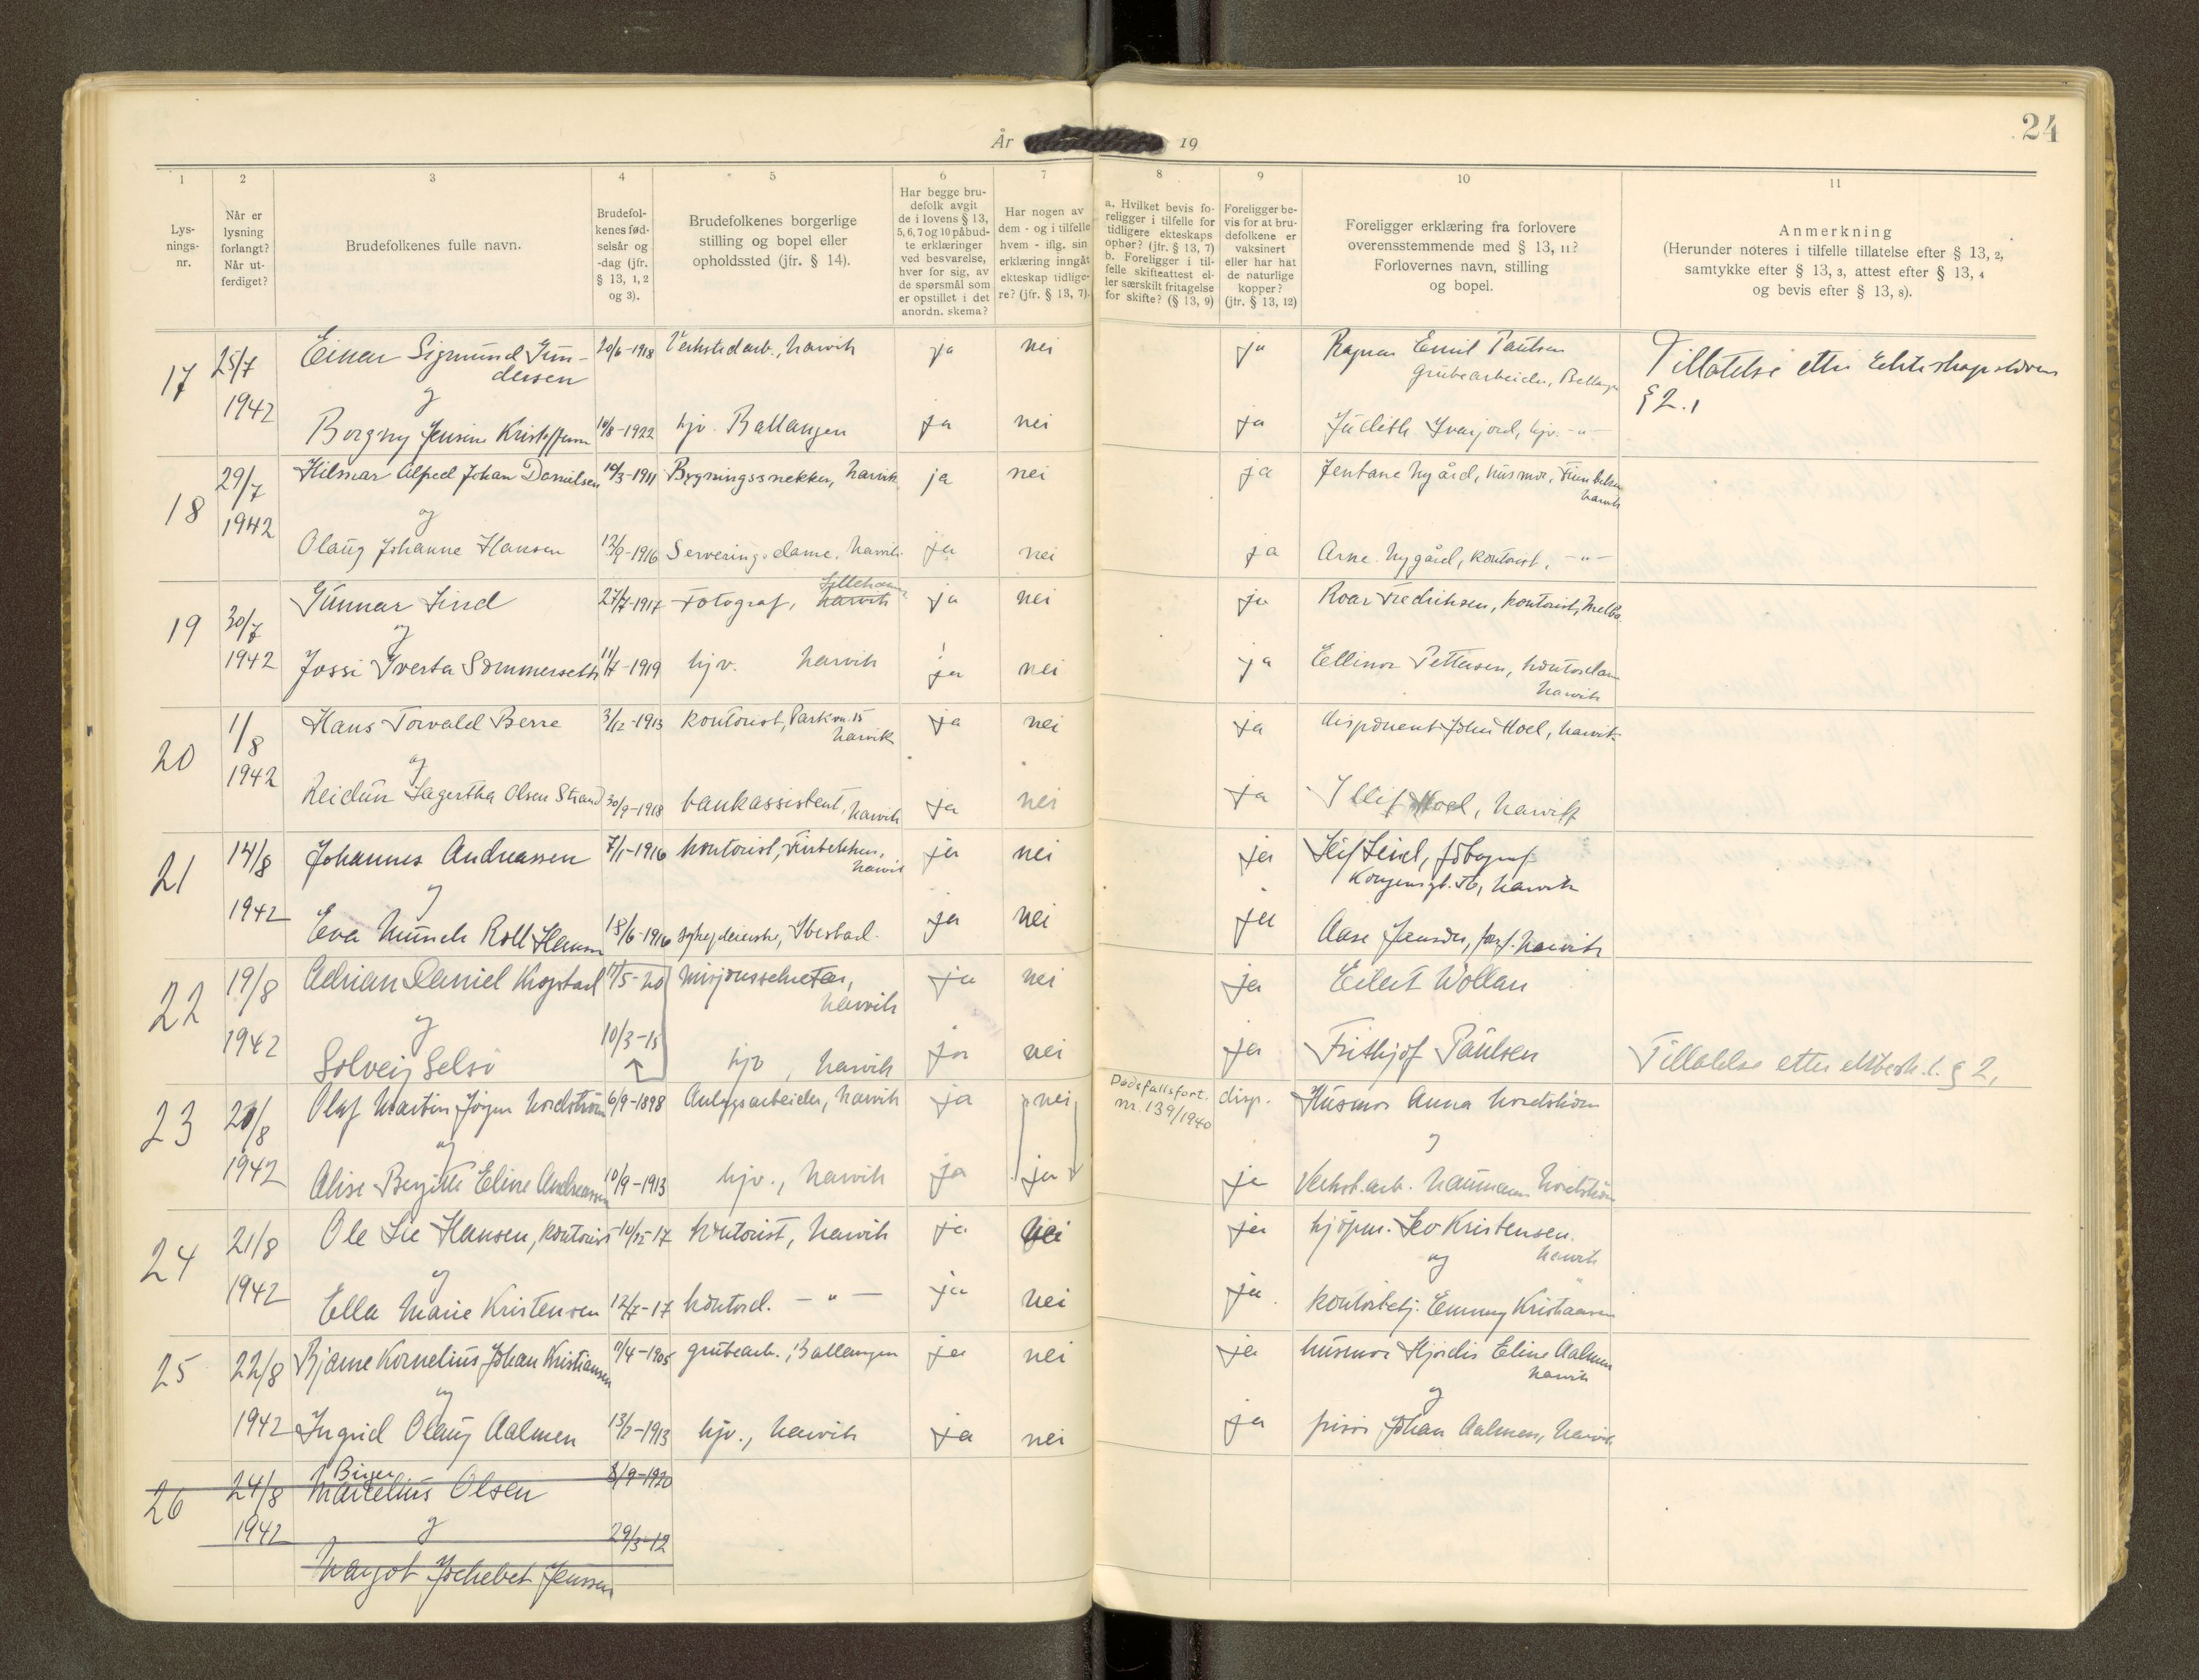 24
År 19
1
2
3
4
5
6
7
8
9
10
11
Lys-
nings-
nr.
Når er
lysning
forlangt?
Når ut-
ferdiget?
Brudefolkenes fulle navn.
Brudefol-
kenes fød-
selsår og
-dag (jfr.
§ 13, 1, 2
og 3).
Brudefolkenes borgerlige
stilling og bopel eller
opholdssted (jfr. § 14).
Har begge bru-
defolk avgit
de i lovens § 13,
5, 6, 7 og 10 påbud-
te erklæringer
ved besvarelse,
hver for sig, av
de spørsmål som
er opstillet i det
anordn. skema?
Har nogen av
dem - og i tilfelle
hvem - iflg. sin
erklæring inngåt
ekteskap tidlige-
re? (jfr. § 13, 7).
a. Hvilket bevis fo-
religger i tilfelle for
tidligere ekteskaps
ophør? (jfr. § 13, 7)
b. Foreligger i til-
felle skifteattest el-
ler særskilt fritagelse
for skifte? (§ 13, 9)
Foreligger be-
vis for at bru-
defolkene er
vaksinert
eller har hat
de naturlige
kopper?
(jfr. § 13, 12)
Foreligger erklæring fra forlovere
overensstemmende med § 13, 11?
Forlovernes navn, stilling
og bopel.
Anmerkning
(Herunder noteres i tilfelle tillatelse efter § 13, 2,
samtykke efter § 13, 3, attest efter § 13, 4
og bevis efter § 13, 8).
17 25/7 Einar Sigmund Gun- 20/6-1918 Verkstedarb., Narvik ja nei ja Ragnar Emil Paulsen Tillatelse etter Ekteskapsloven
dersen grubearbeider, Ballangen § 2.1
og
1942 Borgny Jensine Kristoffersen 14/8-1922 hjv. Ballangen ja nei ja Judith Ivarjord, hjv. -"-
18 29/7 Hilmar Alfred Johan Danielsen 10/3-1911 Bygningssnekker, Narvik ja nei ja Jentane Nygård, husmor,
Narvik
1942 og
Olaug Johanne Hansen 12/9-1916 Serveringsdame, Narvik ja nei ja Arne Nygård, kontorist, -"-
19 30/7 Gunnar Lind 27/7-1917 Fotograf, Narvik ja nei ja Roar Fredriksen, kontorist, Melbo
og
1942 Jossi Sommerseth 11/4-1919 hjv. Narvik ja nei ja Ellinor Pettersen, kontordame
Narvik
20 1/8 Hans Torvald Berre 3/12-1913 kontorist, Parkvn. 15 ja nei ja disponent John Hoel, Narvik
Narvik
1942 og
Reidun Lagertha Olsen Strand 30/9-1918 bankassistent, Narvik ja nei ja Hoel, Narvik
21 14/8 Johannes Andreassen 7/1-1916 kontorist, ja nei ja Leif Lind, fotograf
Narvik Kongensgt. 56, Narvik
og
1942 Eva Munch Roll Hansen 18/6-1916 sykepleierske, Ibestad. ja nei ja Aase Jensen, Narvik
22 19/8 Adrian Daniel Krogstad 17/5-20 misjonssekretær, ja nei ja Eilert Wollan
Narvik
og
1942 Solveig Selsø 10/3-15 hjv, Narvik ja nei ja Frithjof Paulsen Tillatelse etter § 2,
23 20/8 Olaf Martin Jørgen Nordstrøm 6/9-1898 Anlegsarbeider, Narvik ja nei Dødsfallsfort. disp. Husmor Anna Nordstrøm
nr. 139/1940
og og
1942 Alise Birgitte Eline Andreassen 10/9-1913 hjv., Narvik ja ja ja Verkst.arb. Normann Nordstrøm
24 21/8 Ole Lie Hansen, kontorist 10/12-17 kontorist, Narvik ja nei ja kjøpm. Leo Kristensen.
Narvik
og og
1942 Ella Marie Kristensen 12/7-17 kontord. -"- ja nei ja kontorbetj. Emmy Kristiansen
25 22/8 Bjarne Kornelius Johan Kristiansen 9/4-1905 grubearb., Ballangen ja nei ja husmor Hjørdis Eline Aalmen
Narvik
og og
1942 Ingrid Olaug Aalmen 13/2-1913 hjv., Narvik ja nei ja frisør Johan Aalmen, Narvik
Birger
26 24/8 Marcelius Olsen 8/9-1920
1942 og 29/3-12
Margot Jochebet Jensen